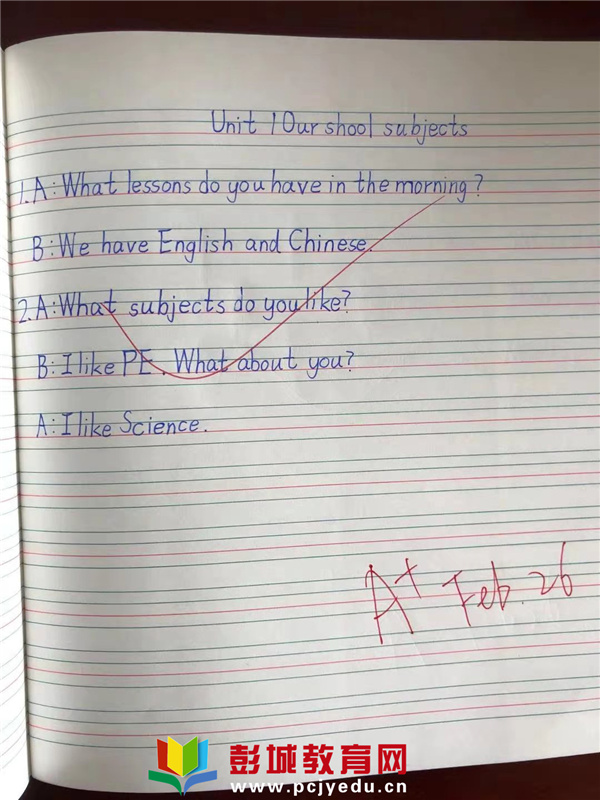 Unit 1 Our shool subjects
1. A: What lessons do you have in the morning?
B: We have English and Chinese.
2. A: What subjects do you like?
B: I like PE. What about you?
A: I like Science.
A+ Feb. 26
彭城教育网
www.pcjyedu.cn